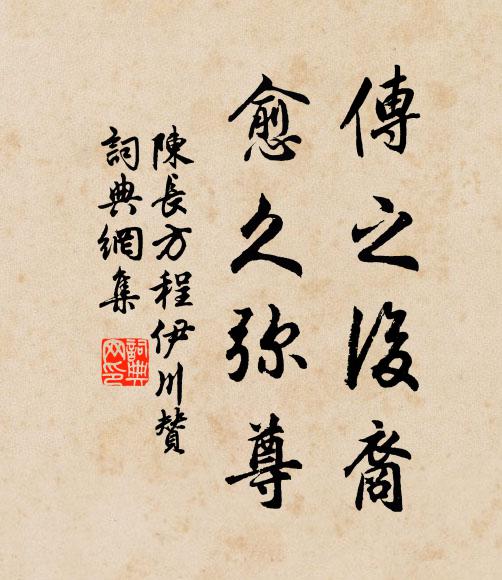 傳之後裔
愈久弥尊
陳長方程伊川贊
詞典網集
詞典网印